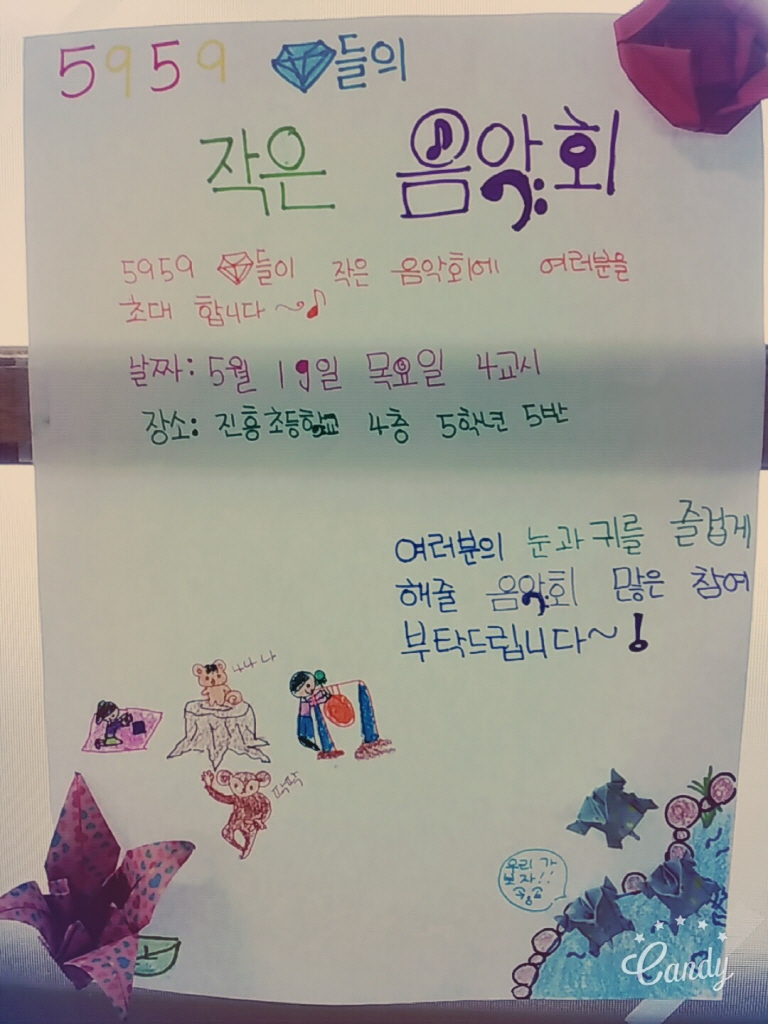 5959 들의
작은 음악회
5959 들이 작은 음악회에 여러분을
초대 합니다~♪
날짜: 5월 19일 목요일 4교시
장소: 진흥초등학교 4층 5학년 5반
여러분의 눈과 귀를 즐겁게
해줄 음악회 많은 참여
부탁드립니다~!
나나나
팍팍
우리 가
보자!!
Candy